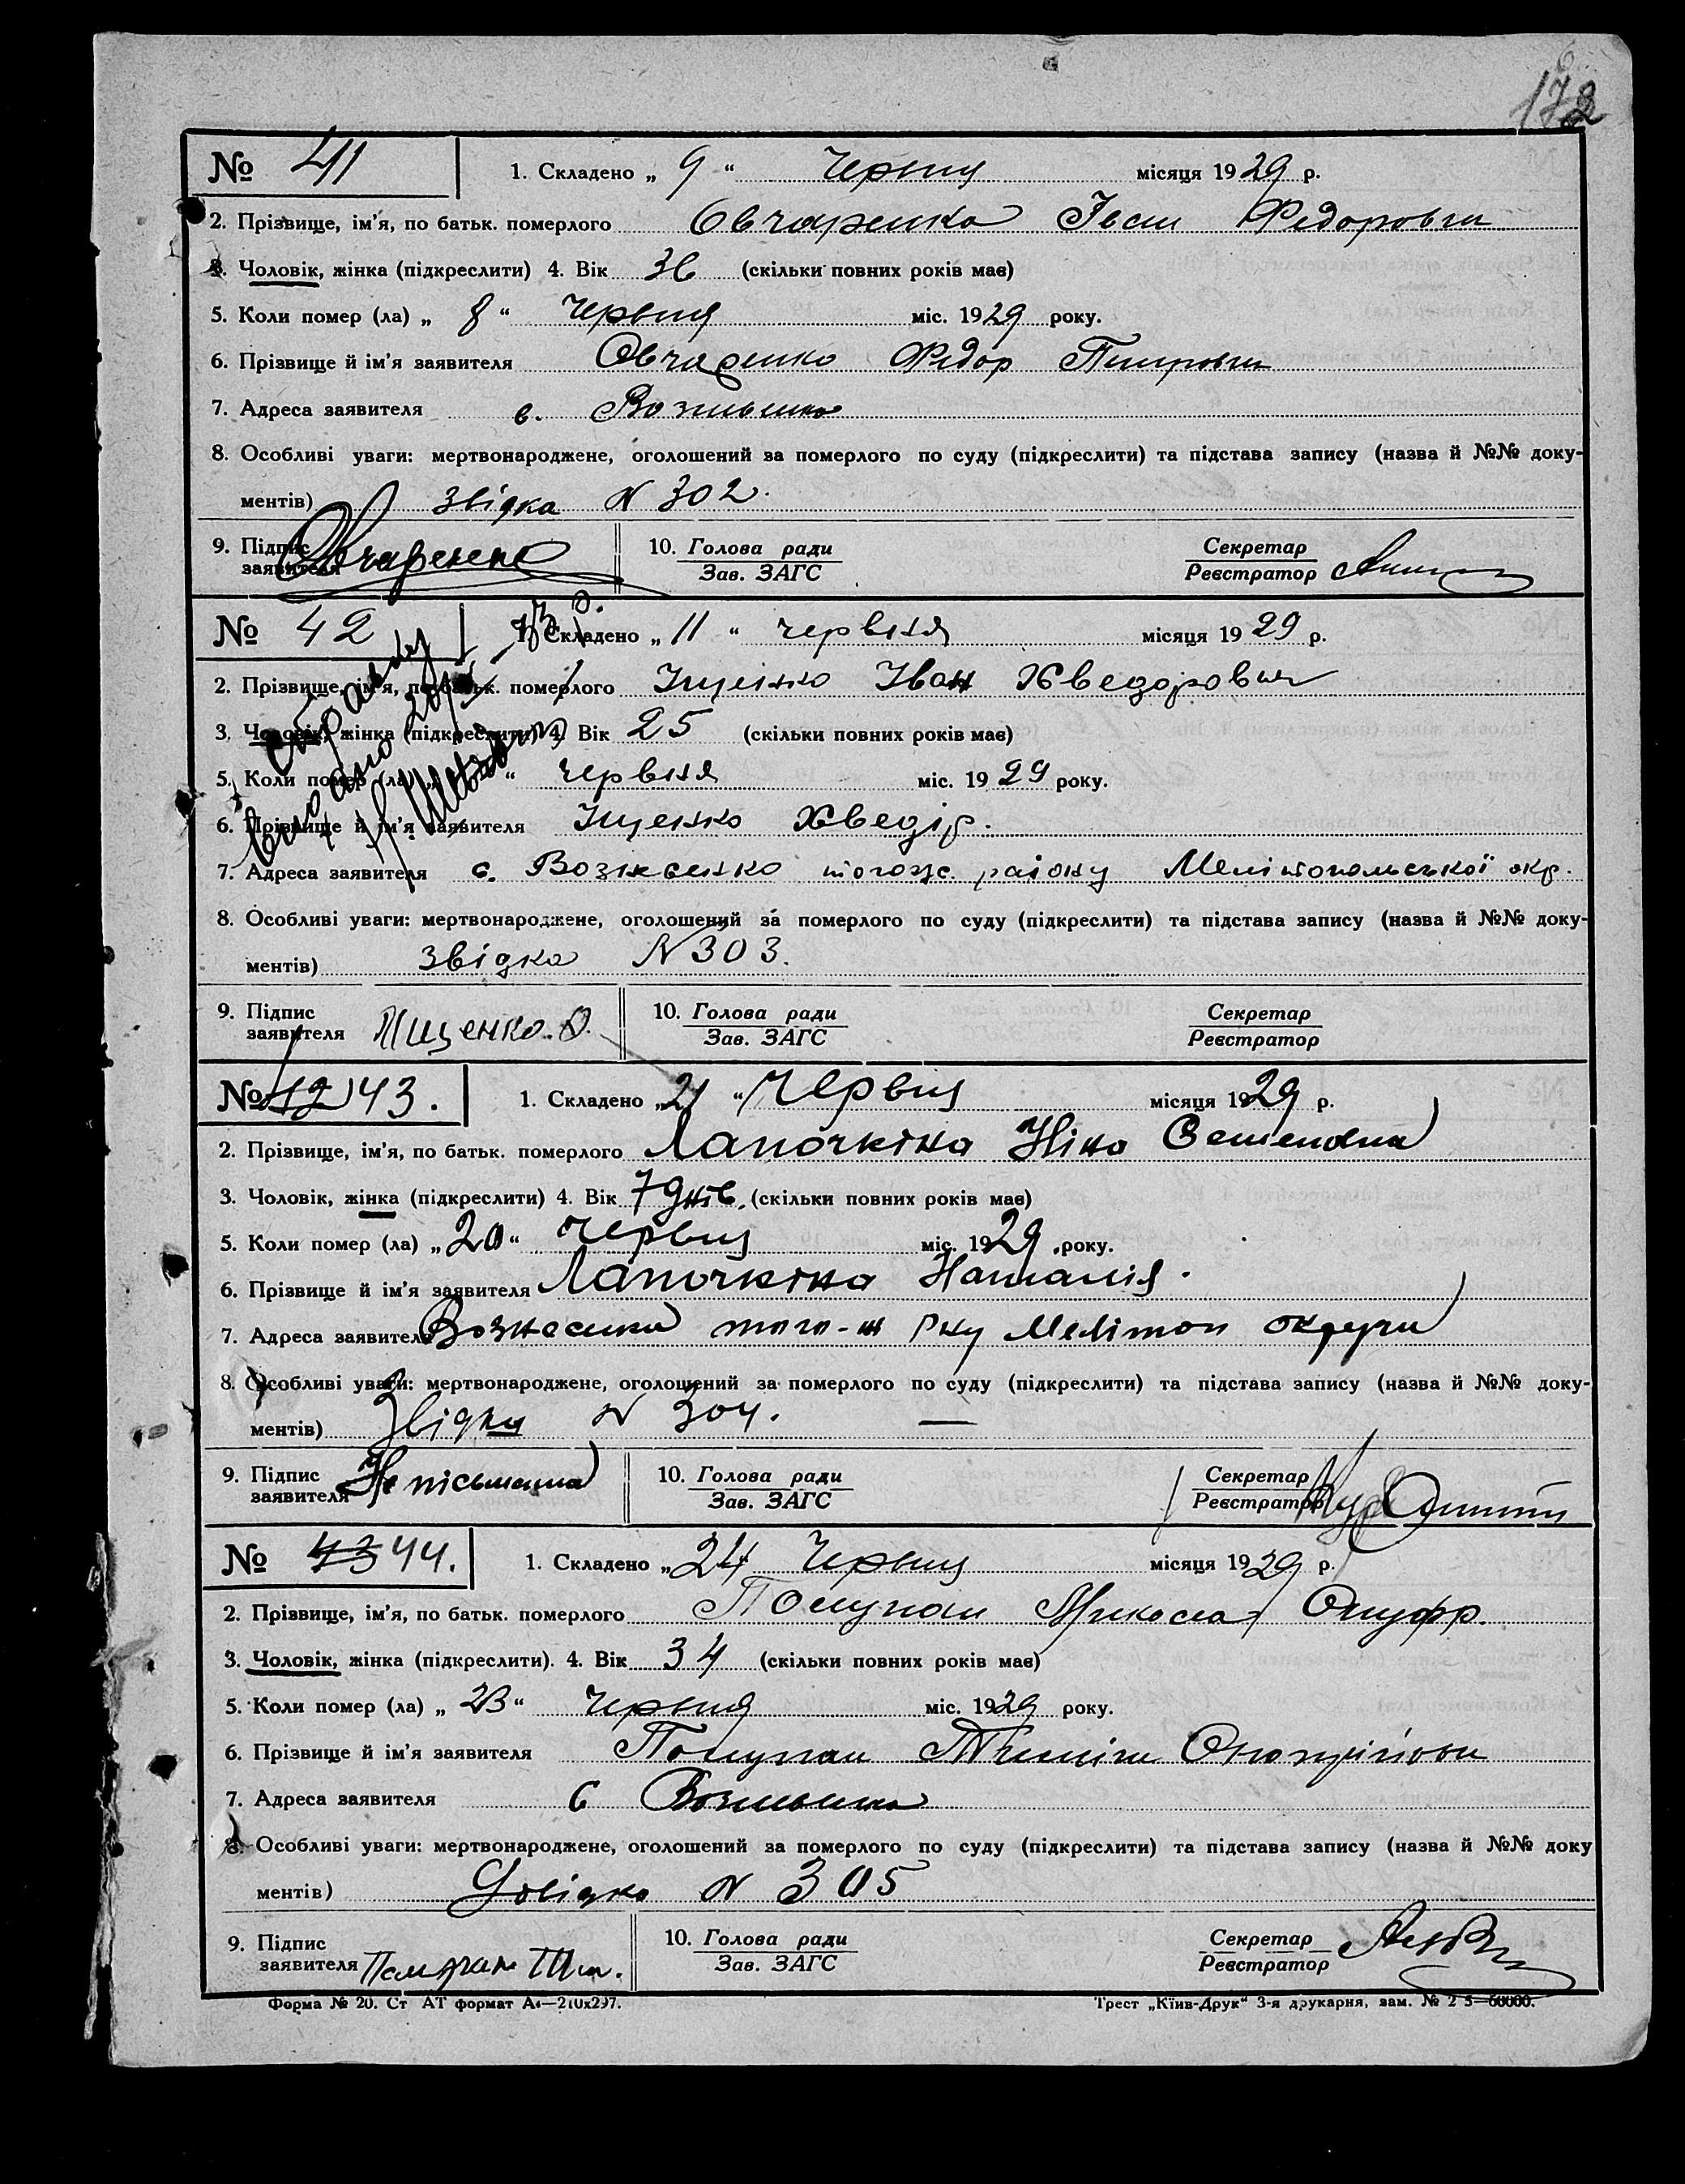 172
№ 41 1. Складено „ 9 “ Червня місяця 1929 р.
2. Прізвище, ім’я, по батьк. померлого Овчаренко Іван Федорович
3. Чоловік, жінка (підкреслити) 4. Вік 36 (скільки повних років має)
5. Коли помер (ла) „ 8 “ Червня міс. 1929 року.
6. Прізвище й ім’я заявителя Овчаренко Федор
7. Адреса заявителя с. Вознесенка
8. Особливі уваги: мертвонароджене, оголошений за померлого по суду (підкреслити) та підстава запису (назва й №№ доку-
ментів) звідка N 302.
9. Підпис заявителя Овчаренко 10. Голова ради Зав. ЗАГС Секретар Реєстратор
№ 42 1. Складено „ 11 “ червня місяця 1929 р.
2. Прізвище, ім’я, по батьк. померлого Іщенко Іван Хведорович
3. Чоловік, жінка (підкреслити) 4. Вік 25 (скільки повних років має)
5. Коли помер (ла) „ “ Червня міс. 1929 року.
6. Прізвище й ім’я заявителя Іщенко Хведір.
7. Адреса заявителя с. Вознесенко тогож району Мелітопольської окр.
8. Особливі уваги: мертвонароджене, оголошений за померлого по суду (підкреслити) та підстава запису (назва й №№ доку-
ментів) звідка N 303.
9. Підпис заявителя Ищенко. Ѳ. 10. Голова ради Зав. ЗАГС Секретар Реєстратор
№ 42 43. 1. Складено „21“ Червня місяця 1929 р.
2. Прізвище, ім’я, по батьк. померлого Лапочкіна Ніна Семеновна
3. Чоловік, жінка (підкреслити) 4. Вік 7 днів. (скільки повних років має)
5. Коли помер (ла) „20“ Червня міс. 1929 року.
6. Прізвище й ім’я заявителя Лапочкіна Наталія.
7. Адреса заявителя Вознесенка того-ж Р-ну Меліт оп округи
8. Особливі уваги: мертвонароджене, оголошений за померлого по суду (підкреслити) та підстава запису (назва й №№ доку-
ментів) Звідка N 304. —
9. Підпис заявителя Не письменна 10. Голова ради Зав. ЗАГС Секретар Реєстратор
№ 43 44. 1. Складено „24“ Червня місяця 1929 р.
2. Прізвище, ім’я, по батьк. померлого Микола Онуфр.
3. Чоловік, жінка (підкреслити). 4. Вік 34 (скільки повних років має)
5. Коли помер (ла) „ 23 “ Червня міс. 1929 року.
6. Прізвище й ім’я заявителя
7. Адреса заявителя с Вознесенка
8. Особливі уваги: мертвонароджене, оголошений за померлого по суду (підкреслити) та підстава запису (назва й №№ доку
ментів) Довідка N 305
9. Підпис заявителя 10. Голова ради Зав. ЗАГС Секретар Реєстратор
Форма № 20. Ст АТ формат А4—210х297. Трест „Київ-Друк“ 3-я друкарня, зам. № 2 5—60000.